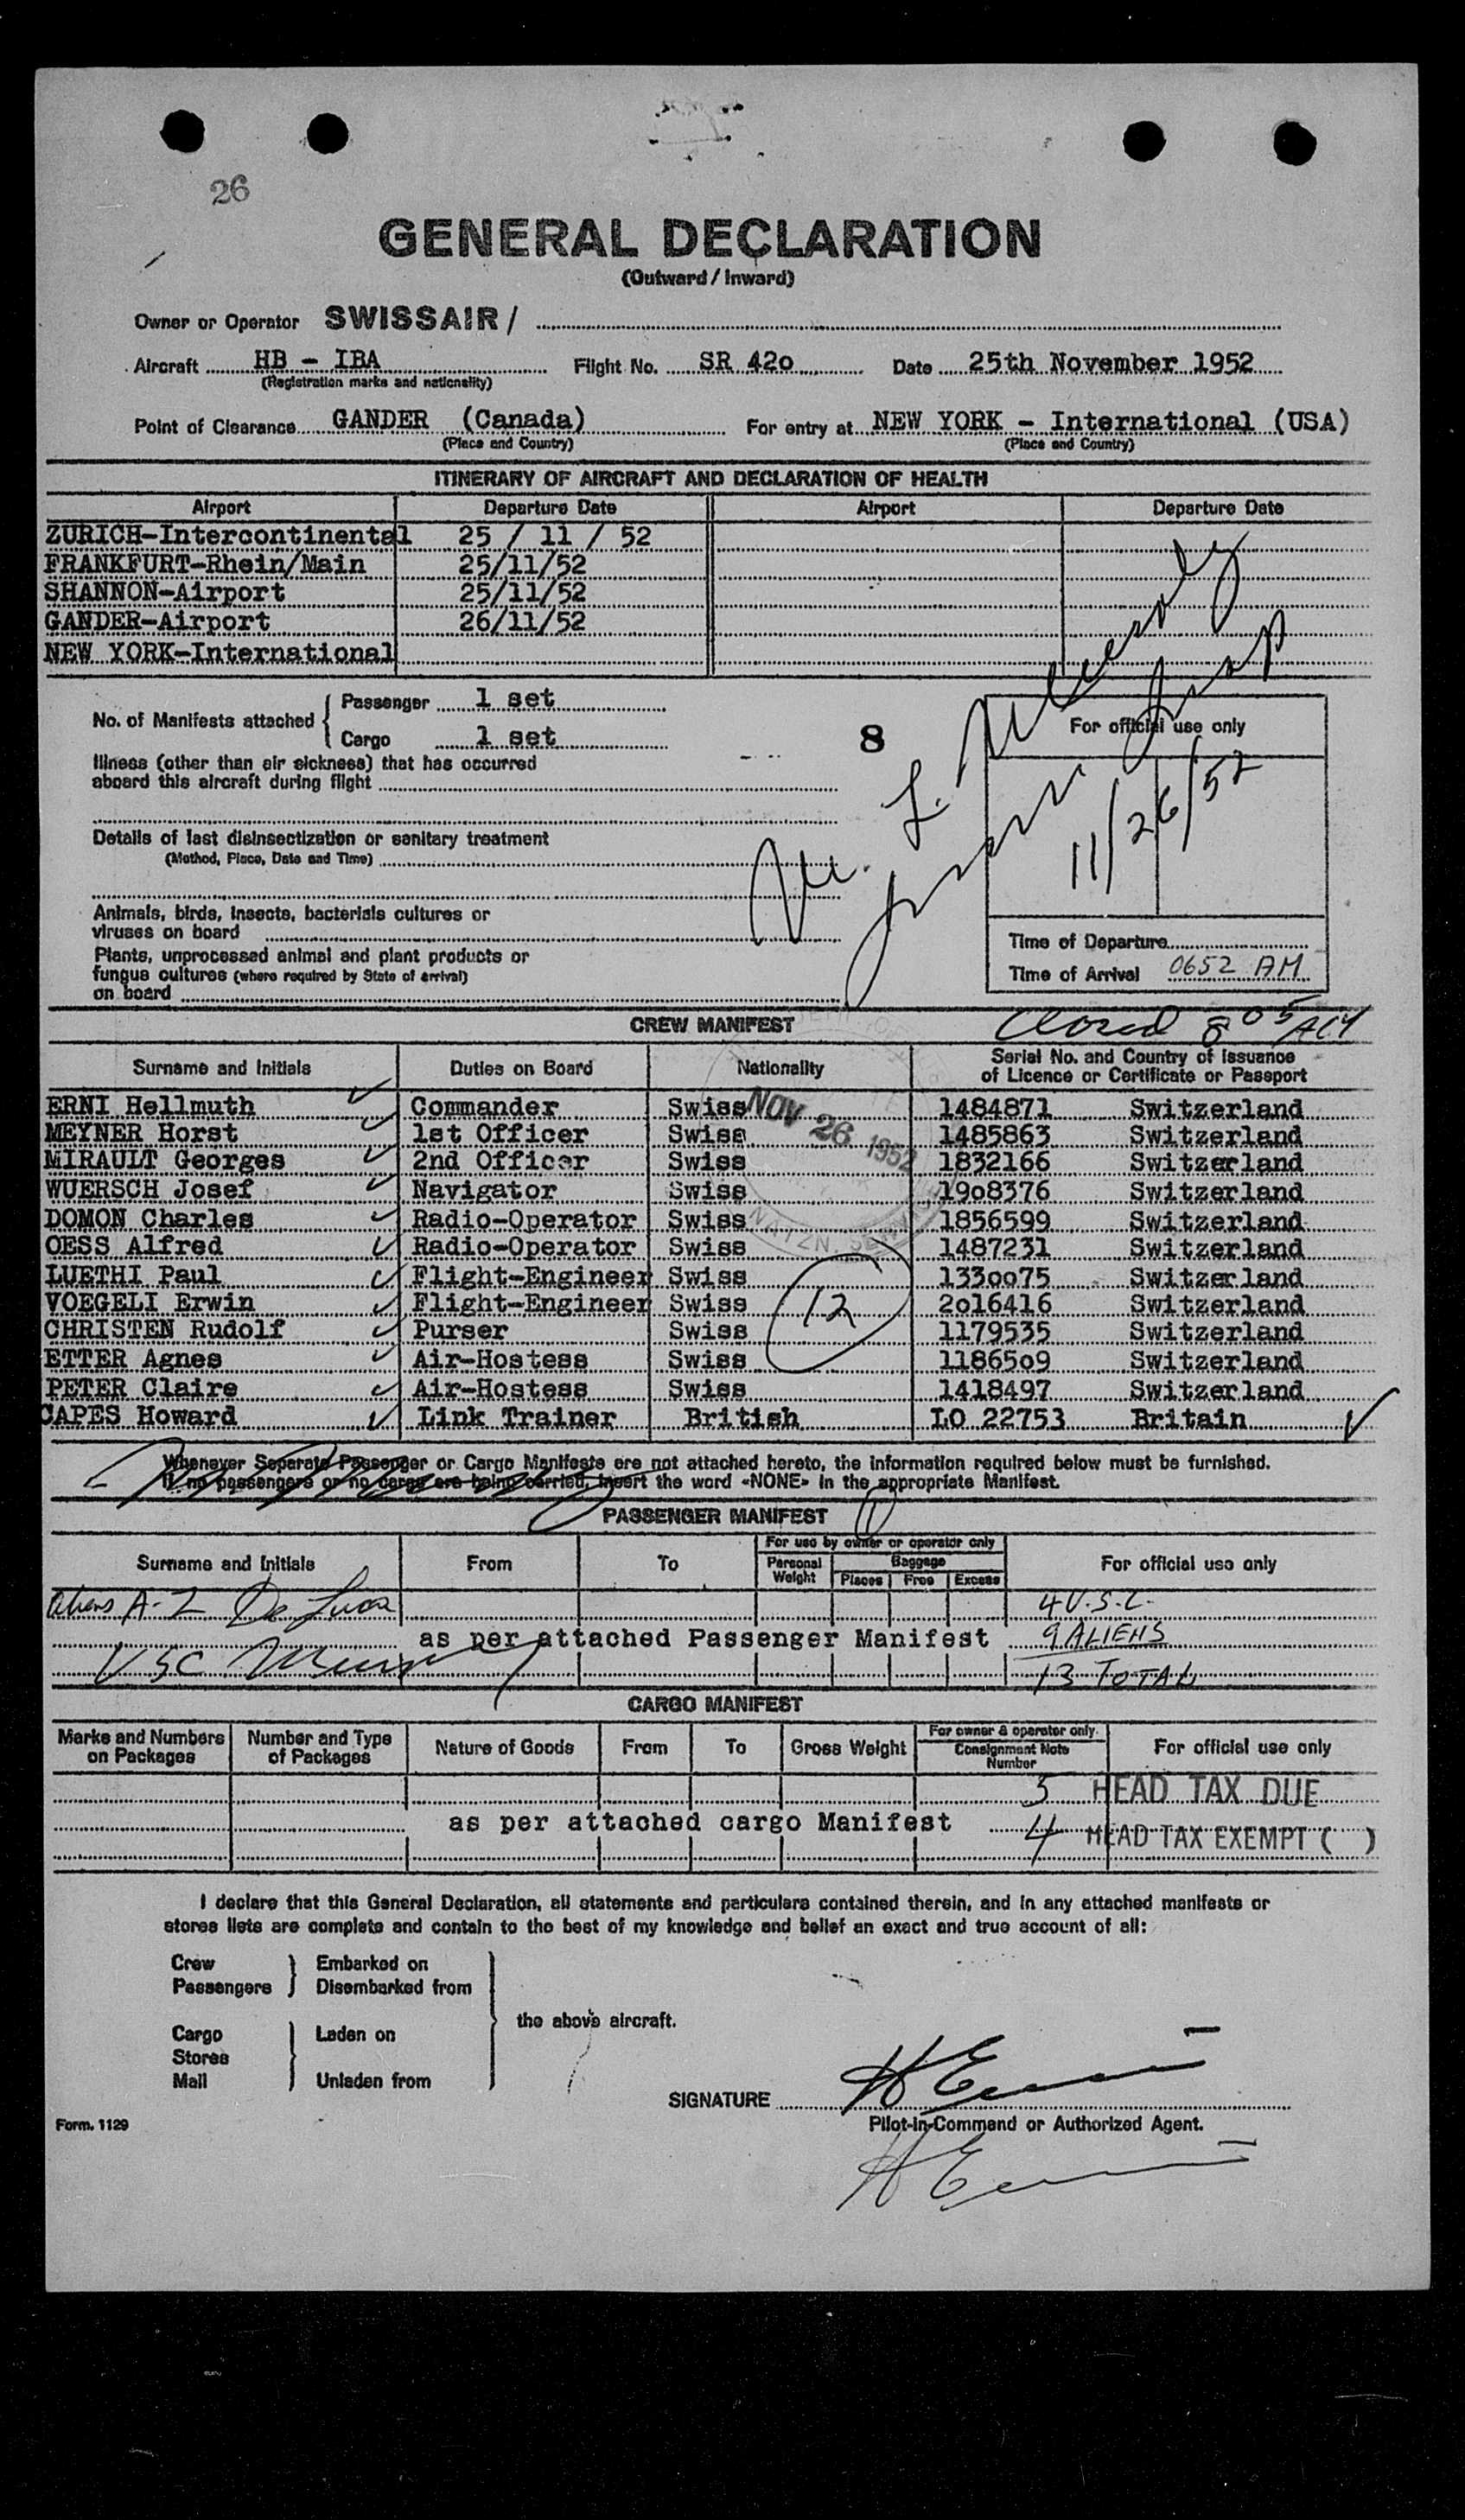 26
GENERAL DECLARATION
(Outward / Inward)
Owner or Operator SWISSAIR /
Aircraft HB - IBA Flight No. SR 42o Date 25th November 1952
(Registration marks and nationality)
Point of Clearance GANDER (Canada) For entry at NEW YORK - International (USA)
(Place and Country) (Place and Country)
ITINERARY OF AIRCRAFT AND DECLARATION OF HEALTH
Airport Departure Date Airport Departure Date
ZURICH-Intercontinental 25 / 11 / 52
FRANKFURT-Rhein/Main 25/11/52
SHANNON-Airport 25/11/52
GANDER-Airport 26/11/52
NEW YORK-International
No. of Manifests attached Passenger 1 set
Cargo 1 set
8
For official use only
Illness (other than air sickness) that has occurred
aboard this aircraft during flight
11/26/52
Details of last disinsectization or sanitary treatment
(Method, Place, Date and Time)
Animals, birds, insects, bacterials cultures or
viruses on board
Plants, unprocessed animal and plant products or
fungus cultures (where required by State of arrival)
on board
Time of Departure
Time of Arrival 0652 AM
Closed 8 05 AM
CREW MANIFEST
Surname and Initials Duties on Board Nationality Serial No. and Country of Issuance
of Licence or Certificate or Passport
NOV 26 1952
ERNI Hellmuth Commander Swiss 1484871 Switzerland
MEYNER Horst 1st Officer Swiss 1485863 Switzerland
MIRAULT Georges 2nd Officer Swiss 1832166 Switzerland
WUERSCH Josef Navigator Swiss 19o8376 Switzerland
DOMON Charles Radio-Operator Swiss 1856599 Switzerland
OESS Alfred Radio-Operator Swiss 1487231 Switzerland
LUETHI Paul Flight-Engineer Swiss 133oo75 Switzerland
VOEGELI Erwin Flight-Engineer Swiss 2o16416 Switzerland
12
CHRISTEN Rudolf Purser Swiss 1179535 Switzerland
ETTER Agnes Air-Hostess Swiss 11865o9 Switzerland
PETER Claire Air-Hostess Swiss 1418497 Switzerland
CAPES Howard Link Trainer British LO 22753 Britain
Whenever Separate Passenger or Cargo Manifests are not attached hereto, the information required below must be furnished.
If no passengers or no cargo are being carried, insert the word «NONE» in the appropriate Manifest.
PASSENGER MANIFEST
Surname and Initials From To For use by owner or operator only For official use only
Personal Weight Baggage
Pieces Free Excess
Aliens A-Z De Luca 4 U.S.C.
as per attached Passenger Manifest 9 ALIENS
USC 13 TOTAL
CARGO MANIFEST
Marks and Numbers on Packages Number and Type of Packages Nature of Goods From To Gross Weight For owner & operator only Consignment Note Number For official use only
5 HEAD TAX DUE
as per attached cargo Manifest 4 HEAD TAX EXEMPT ( )
I declare that this General Declaration, all statements and particulars contained therein, and in any attached manifests or
stores lists are complete and contain to the best of my knowledge and belief an exact and true account of all:
Crew Embarked on
Passengers Disembarked from
the above aircraft.
Cargo Laden on
Stores
Mail Unladen from
SIGNATURE H Erni
Pilot-in-Command or Authorized Agent.
Form. 1129
H Erni